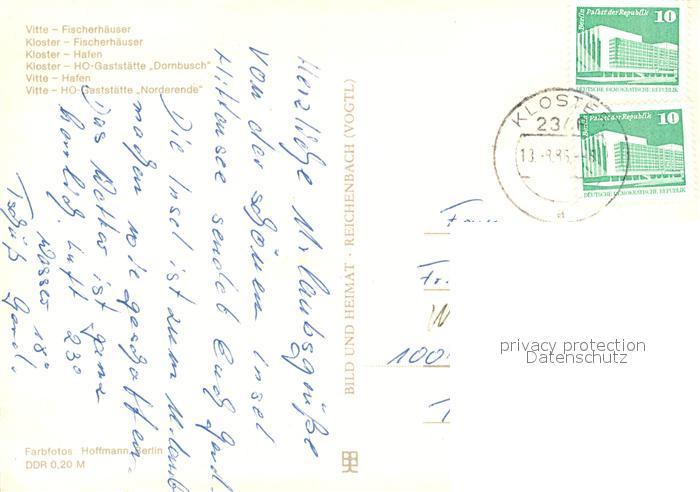 Vitte – Fischerhäuser
Kloster – Fischerhäuser
Kloster – Hafen
Kloster – HO-Gaststätte „Dornbusch"
Vitte – Hafen
Vitte – HO-Gaststätte „Norderende"
Herzliche Urlaubsgrüße
von der schönen Insel
Hiddensee sendet Euch Gerd.
Die Insel ist zum Urlaub
machen wie geschaffen.
Das Wetter ist ganz
Luft 23°
Wasser 18°
Tschüß Gerd.
Farbfotos Hoffmann, Berlin
DDR 0,20 M
BILD UND HEIMAT · REICHENBACH (VOGTL)
Berlin Palast der Republik 10
DEUTSCHE DEMOKRATISCHE REPUBLIK
Berlin Palast der Republik 10
DEUTSCHE DEMOKRATISCHE REPUBLIK
KLOSTE
23
Fam
Fr.
100
privacy protection
Datenschutz